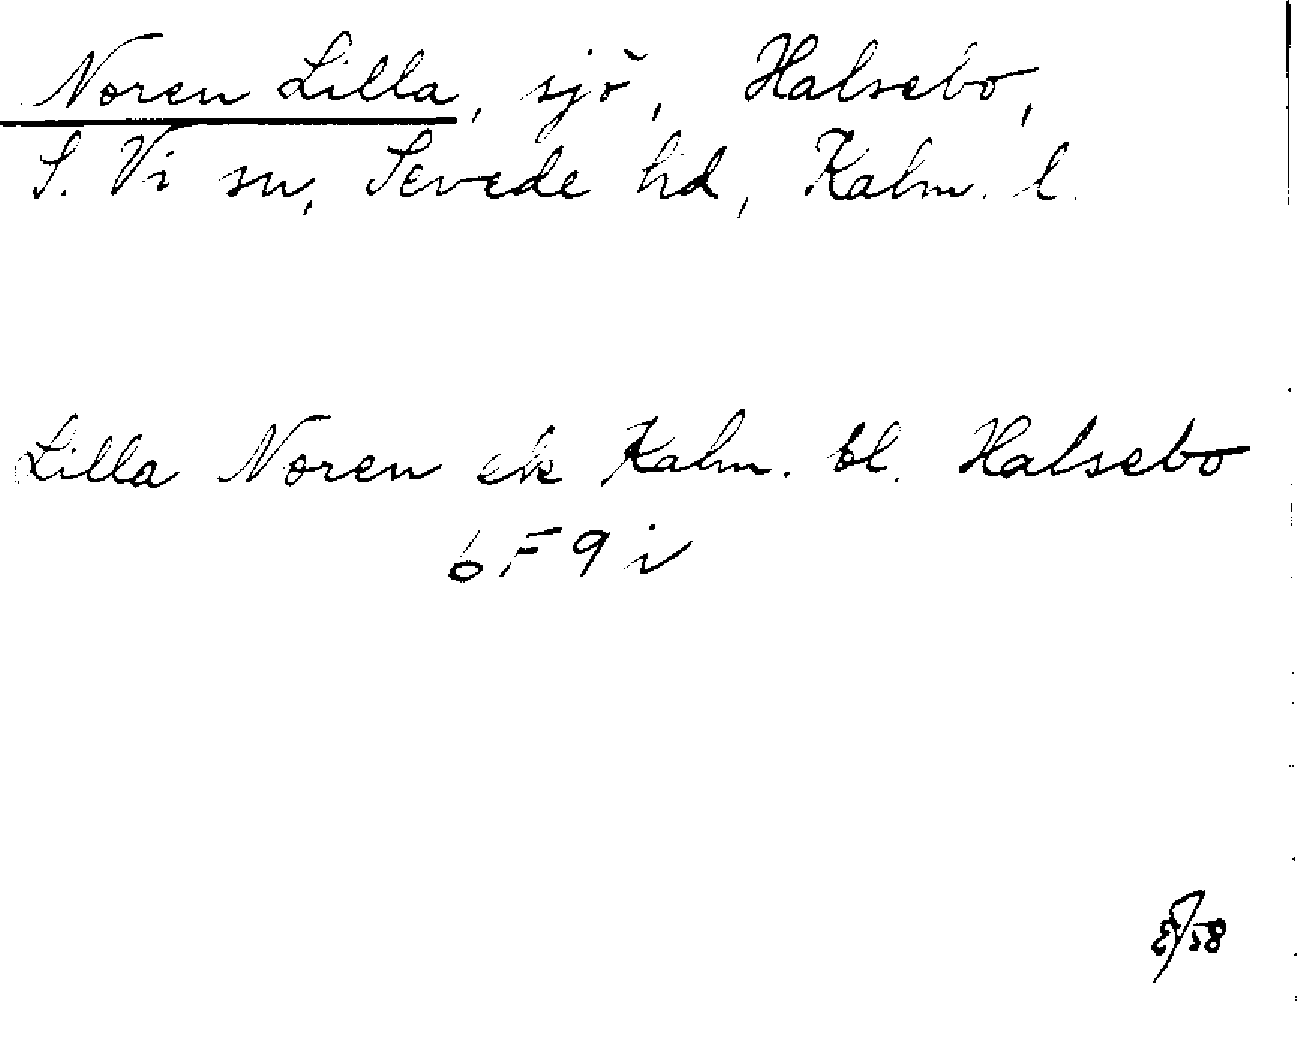 Noren Lilla, sjö, Halsebo,
S. Vi sn, Sevede hd, Kalm. l.
Lilla Noren ek Kalm. bl. Halsebo
6F 9 i